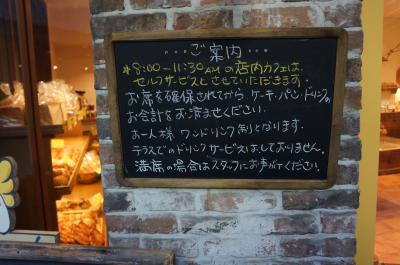 ・・・ご案内・・・
*8:00〜11:30AMの店内カフェは、
セルフサービスとさせていただきます。
お席を確保されてから、ケーキ・パン・ドリンクの
お会計をお済ませください。
お一人様 ワンドリンク制となります。
テラスでのドリンクサービスはしておりません。
満席の場合はスタッフにお声がけください。